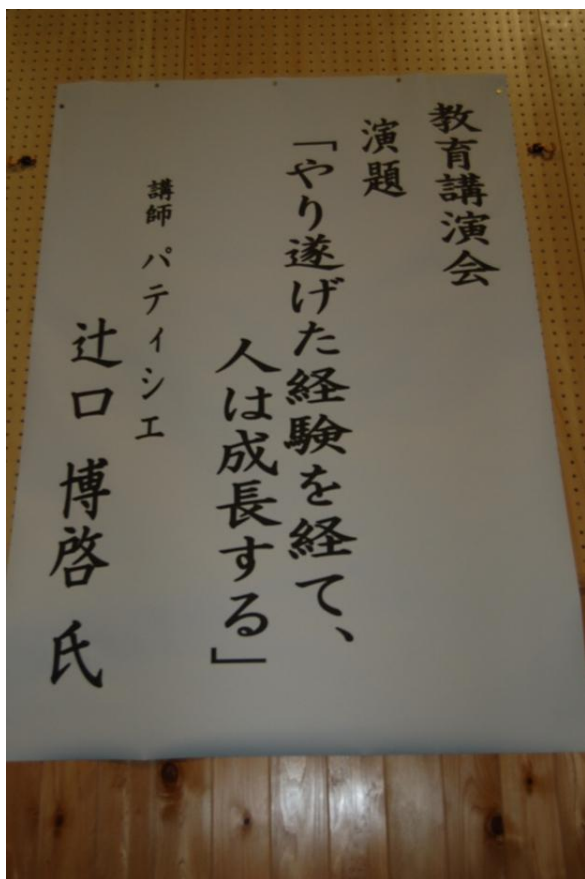 教育講演会
演題
「やり遂げた経験を経て、
人は成長する」
講師 パティシエ
辻口 博啓 氏